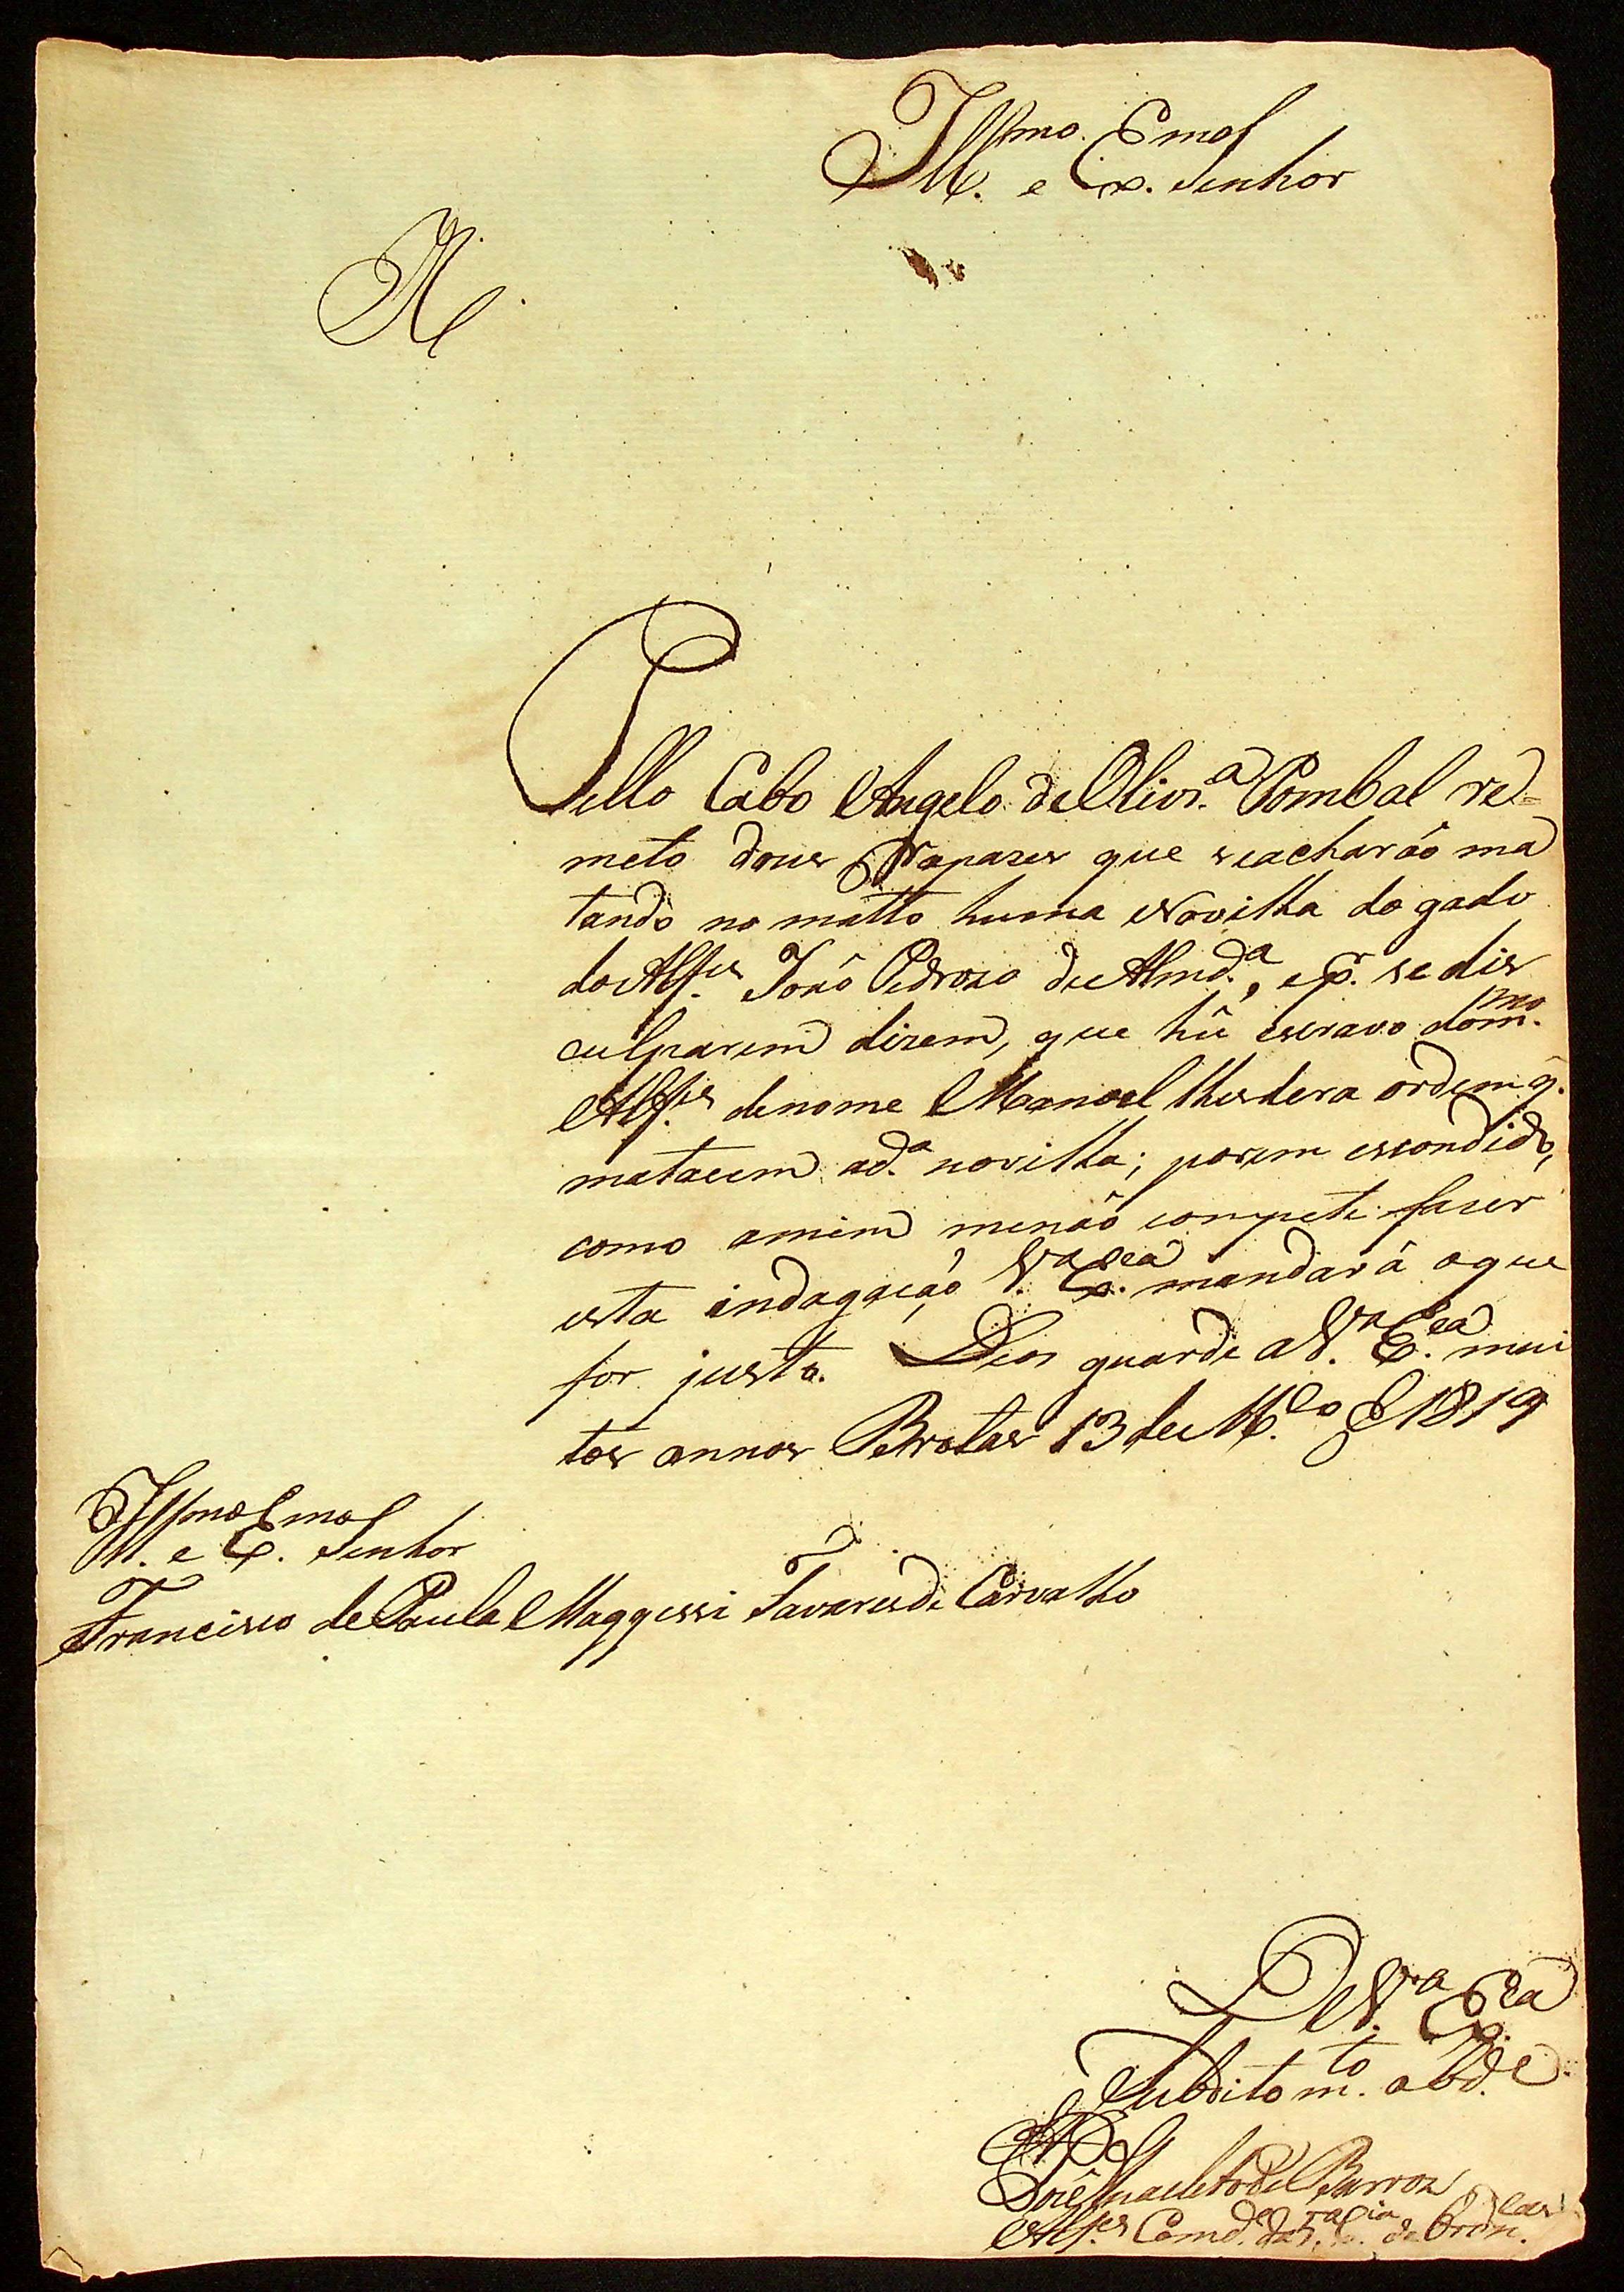 Ill.mo e Ex.mo Senhor
R
Pello Cabo Angelo de Olivr.a Pombal re=
meto dous Rapazes que seacharão ma
tando no matto huma Novilha do gado
do Alf.es João Pedrozo de Almd.a, ep.a se dis
culparem dizem, que hũ escravo dom.mo
Alf.es denome Manoel lhes dera ordem q.
matacem ad.a novilha; porem escondido,
como amim menão compete fazer
esta indagação V.a Ex.cia mandará oque
for justo. Deos guarde a V.a Ex.cia mui
tos annos Brotas 13 de M.ço de 1819
Ill.mo e Ex.mo Senhor
Francisco de Paula Maggessi Tavares de Carvalho
De V.a Ex.cia
Subdito m.to obd.e
José de Barros
Alf.es Comd.e da Cia de Ordn.cas